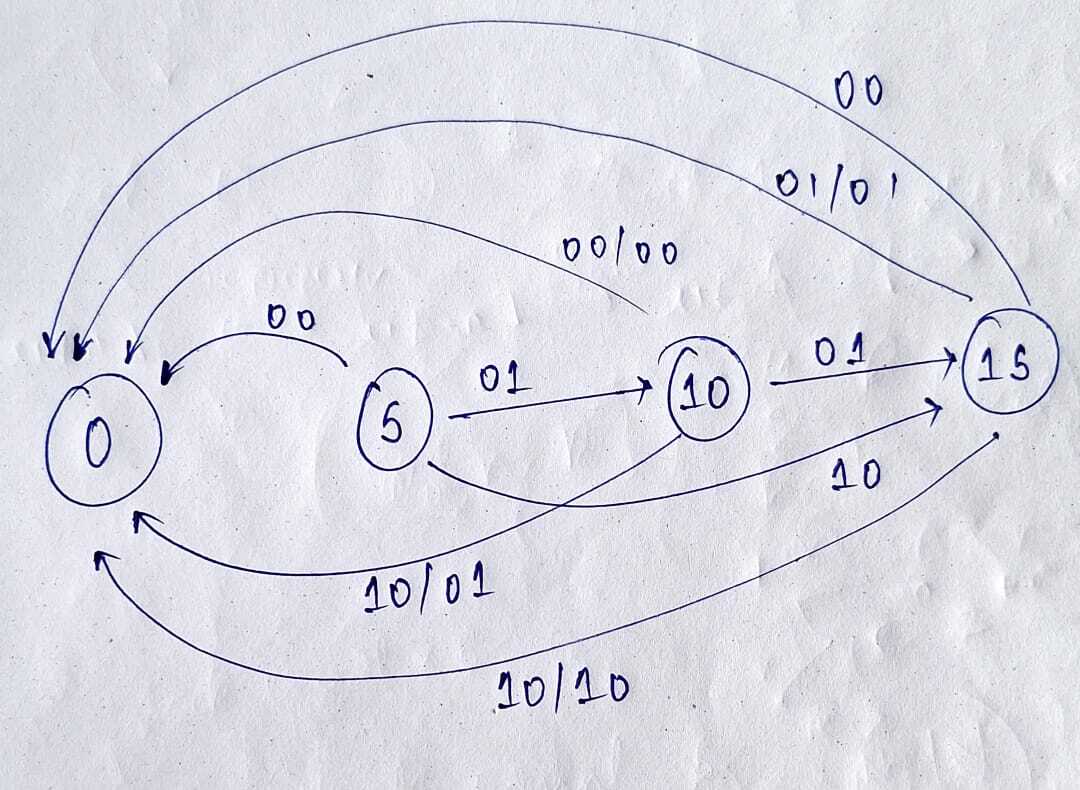 00
01/01
00/00
00
01
01
0
5
10
15
10
10/01
10/10